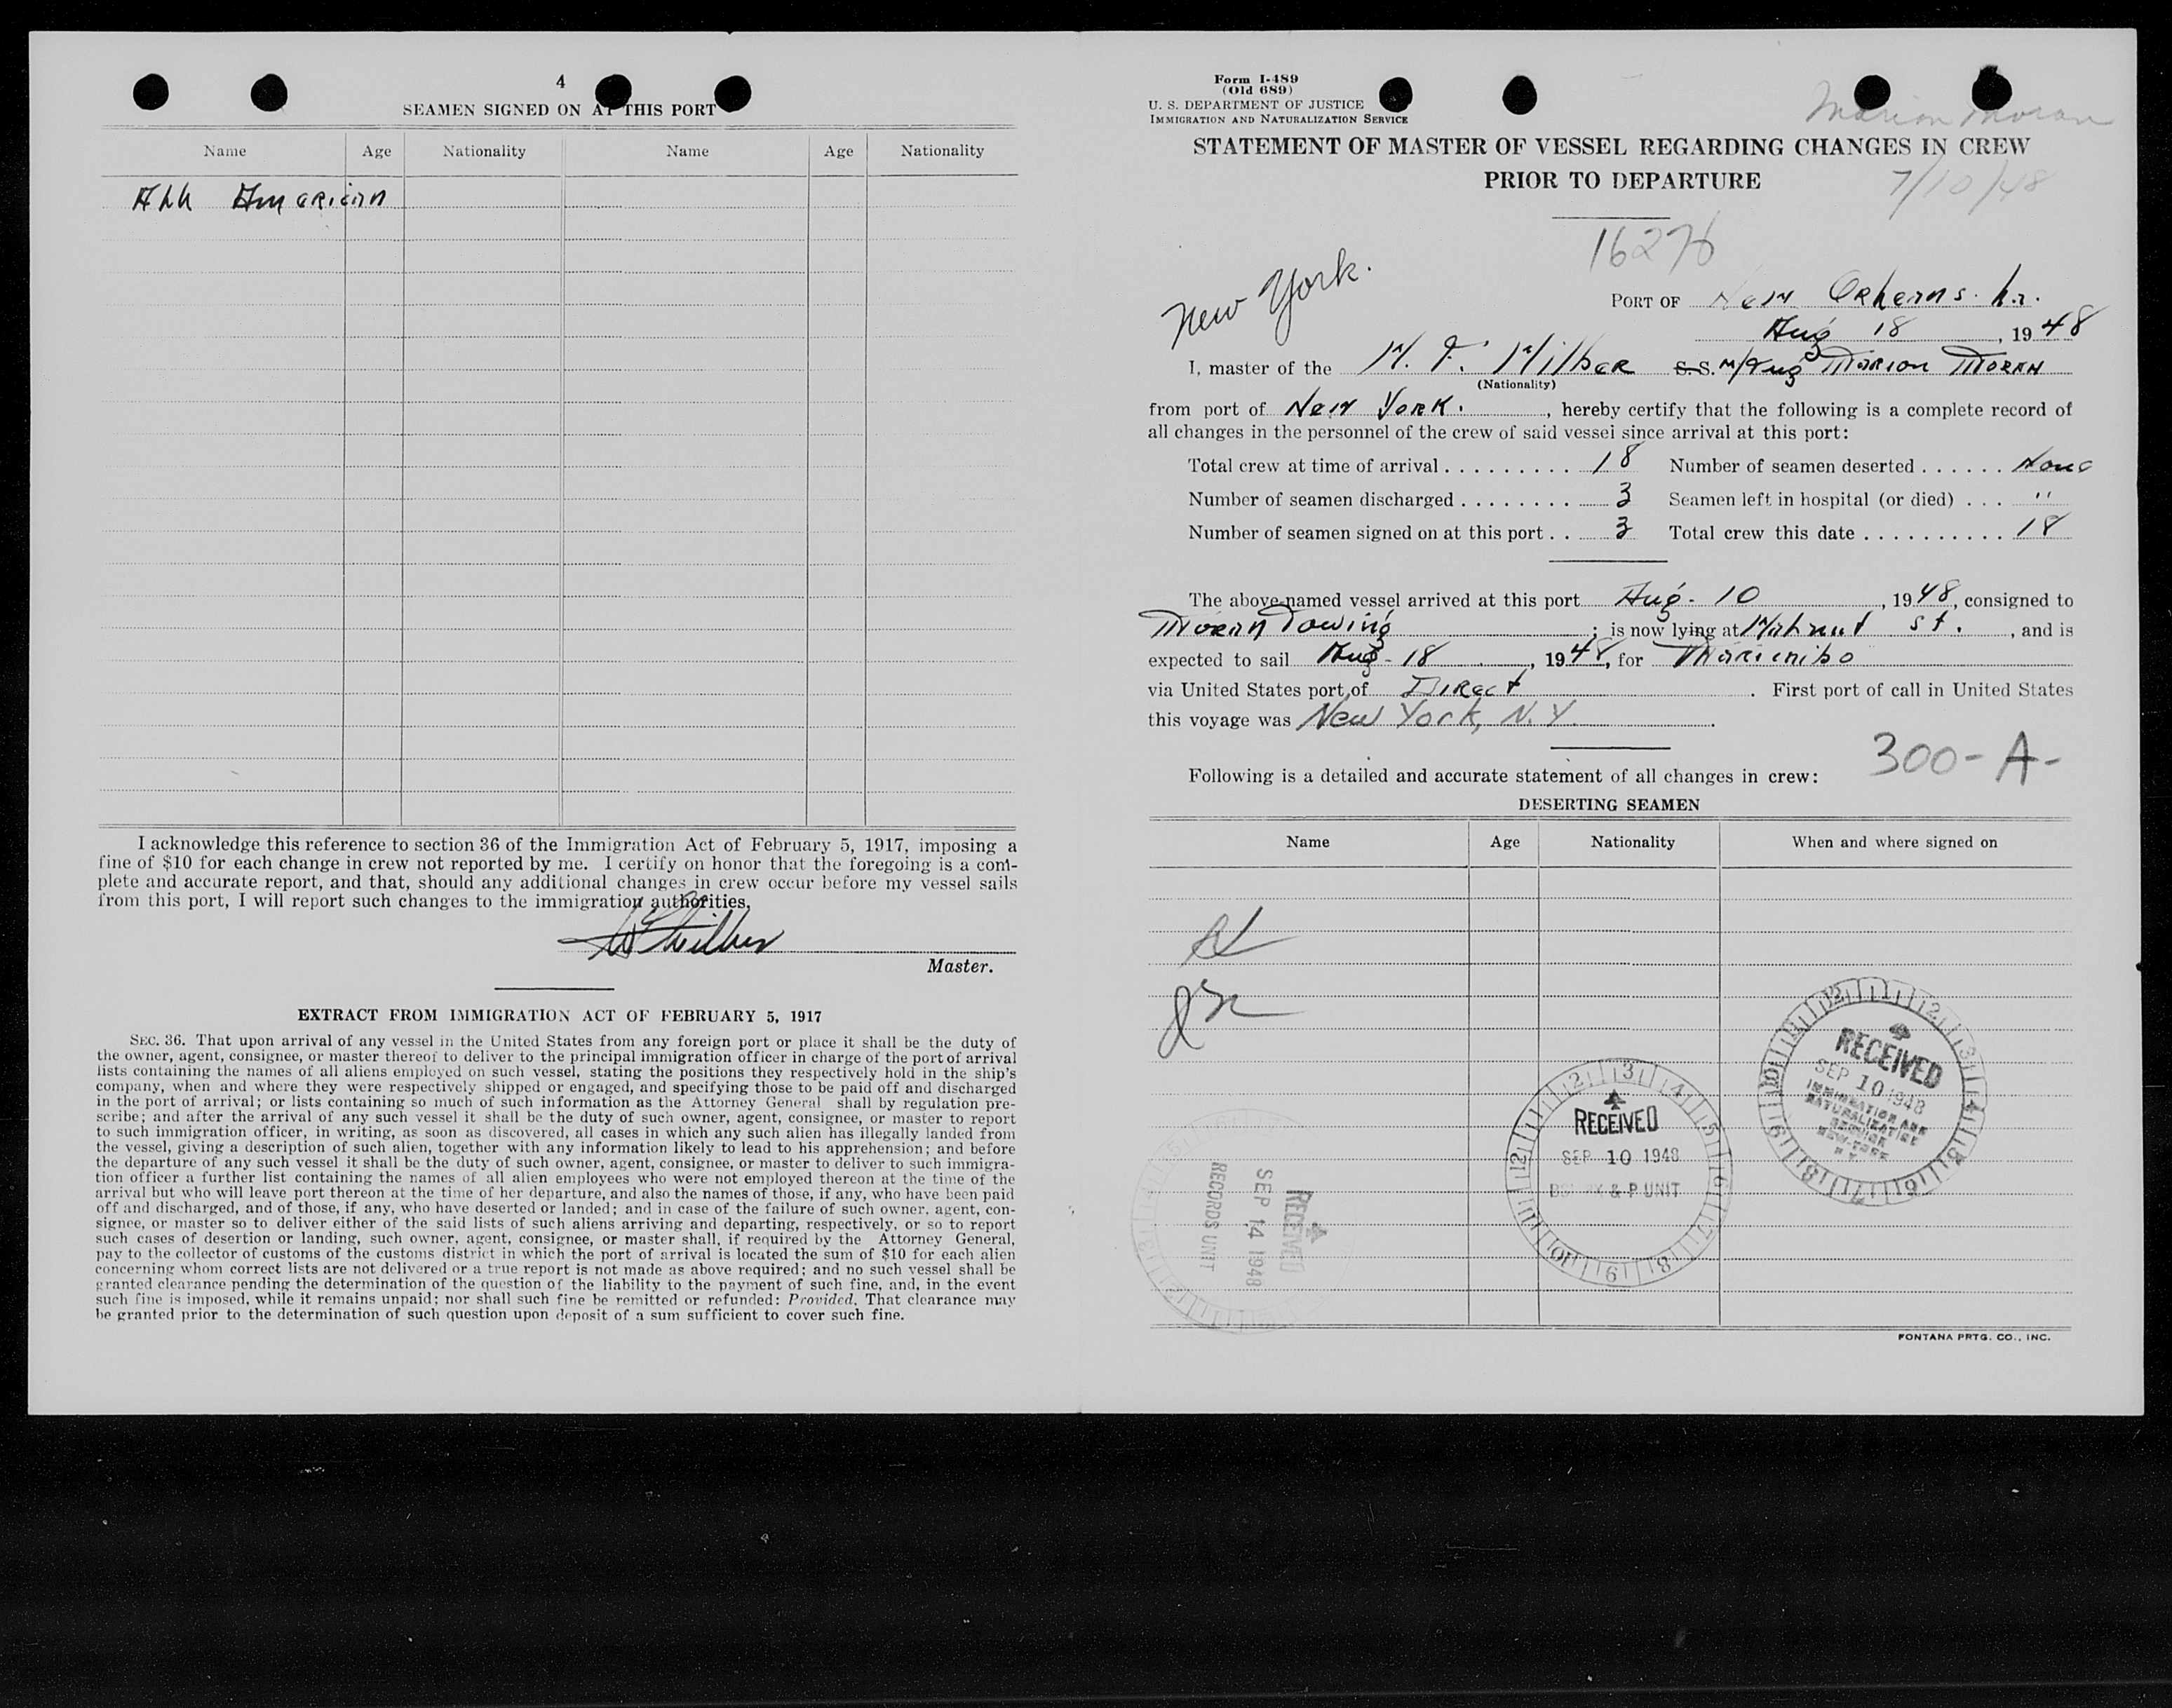 4
SEAMEN SIGNED ON AT THIS PORT
Name Age Nationality Name Age Nationality
All American
I acknowledge this reference to section 36 of the Immigration Act of February 5, 1917, imposing a
fine of $10 for each change in crew not reported by me. I certify on honor that the foregoing is a com-
plete and accurate report, and that, should any additional changes in crew occur before my vessel sails
from this port, I will report such changes to the immigration authorities.
Master.
EXTRACT FROM IMMIGRATION ACT OF FEBRUARY 5, 1917
SEC. 36. That upon arrival of any vessel in the United States from any foreign port or place it shall be the duty of
the owner, agent, consignee, or master thereof to deliver to the principal immigration officer in charge of the port of arrival
lists containing the names of all aliens employed on such vessel, stating the positions they respectively hold in the ship's
company, when and where they were respectively shipped or engaged, and specifying those to be paid off and discharged
in the port of arrival; or lists containing so much of such information as the Attorney General shall by regulation pre-
scribe; and after the arrival of any such vessel it shall be the duty of such owner, agent, consignee, or master to report
to such immigration officer, in writing, as soon as discovered, all cases in which any such alien has illegally landed from
the vessel, giving a description of such alien, together with any information likely to lead to his apprehension; and before
the departure of any such vessel it shall be the duty of such owner, agent, consignee, or master to deliver to such immigra-
tion officer a further list containing the names of all alien employees who were not employed thereon at the time of the
arrival but who will leave port thereon at the time of her departure, and also the names of those, if any, who have been paid
off and discharged, and of those, if any, who have deserted or landed; and in case of the failure of such owner, agent, con-
signee, or master so to deliver either of the said lists of such aliens arriving and departing, respectively, or so to report
such cases of desertion or landing, such owner, agent, consignee, or master shall, if required by the Attorney General,
pay to the collector of customs of the customs district in which the port of arrival is located the sum of $10 for each alien
concerning whom correct lists are not delivered or a true report is not made as above required; and no such vessel shall be
granted clearance pending the determination of the question of the liability to the payment of such fine, and, in the event
such fine is imposed, while it remains unpaid; nor shall such fine be remitted or refunded: Provided, That clearance may
be granted prior to the determination of such question upon deposit of a sum sufficient to cover such fine.
Form I-489
(Old 689)
U. S. DEPARTMENT OF JUSTICE
IMMIGRATION AND NATURALIZATION SERVICE
Marion Moran
STATEMENT OF MASTER OF VESSEL REGARDING CHANGES IN CREW
PRIOR TO DEPARTURE
7/10/48
16276
New York.
PORT OF New Orleans. La.
Aug 18, 1948
I, master of the W. F. Wilber S.S. M/Tug Marion Moran
(Nationality)
from port of New York., hereby certify that the following is a complete record of
all changes in the personnel of the crew of said vessel since arrival at this port:
Total crew at time of arrival . . . . . . . . . 18 Number of seamen deserted . . . . . . None
Number of seamen discharged . . . . . . . . 3 Seamen left in hospital (or died) . . . "
Number of seamen signed on at this port . . 3 Total crew this date . . . . . . . . . . 18
The above-named vessel arrived at this port Aug - 10, 1948, consigned to
Moran Towing; is now lying at Walnut St., and is
expected to sail Aug - 18, 1948, for
via United States port of Direct. First port of call in United States
this voyage was New York, N.Y.
300-A-
Following is a detailed and accurate statement of all changes in crew:
DESERTING SEAMEN
Name Age Nationality When and where signed on
RECEIVED
SEP 10 1948
IMMIGRATION AND
NATURALIZATION
SERVICE
NEW YORK
N Y
RECEIVED
SEP 10 1948
& P UNIT
RECEIVED
SEP 14 1948
RECORDS UNIT
FONTANA PRTG. CO., INC.